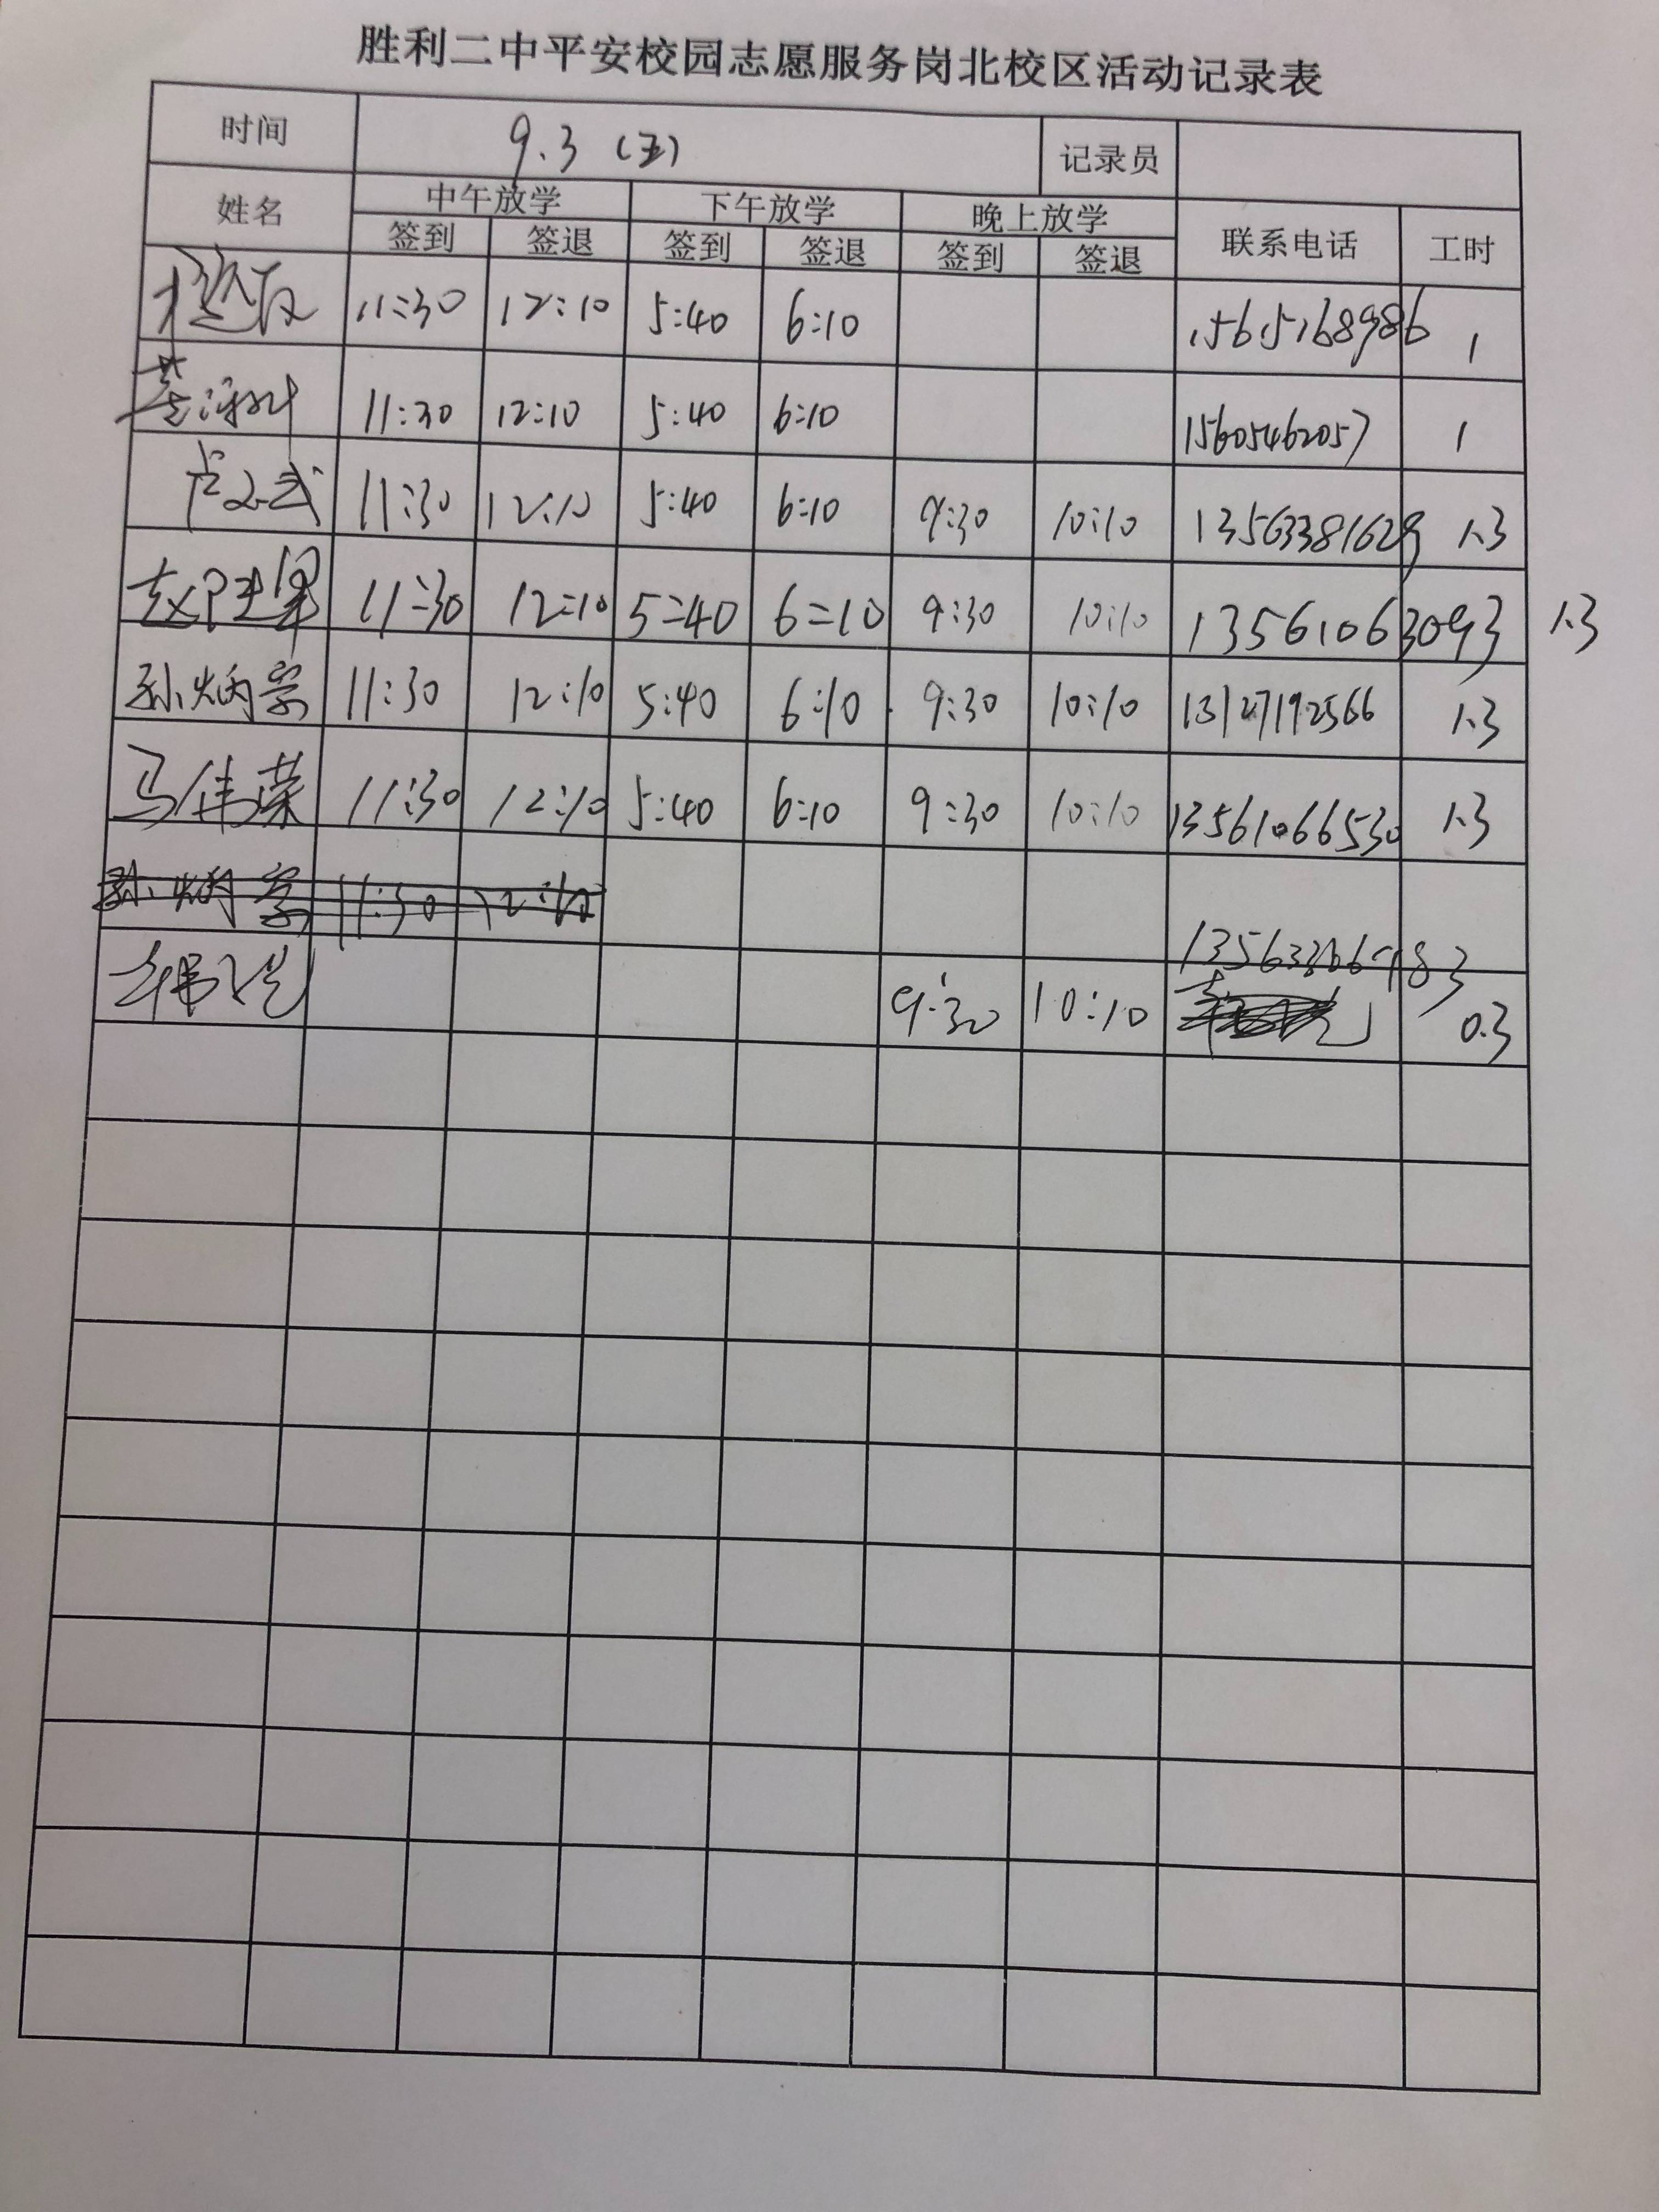 胜利二中平安校园志愿服务岗北校区活动记录表
时间 9.3 (五) 记录员
姓名 中午放学 下午放学 晚上放学 联系电话 工时
签到 签退 签到 签退 签到 签退
11:30 12:10 5:40 6:10 15615168986 1
11:30 12:10 5:40 6:10 15605462057 1
卢文武 11:30 12:10 5:40 6:10 9:30 10:10 13563381629 1.3
11:30 12:10 5:40 6:10 9:30 10:10 13561063093 1.3
孙炳字 11:30 12:10 5:40 6:10 9:30 10:10 13127192566 1.3
马伟荣 11:30 12:10 5:40 6:10 9:30 10:10 13561066530 1.3
孙炳字 11:30 12:10
9:30 10:10 0.3